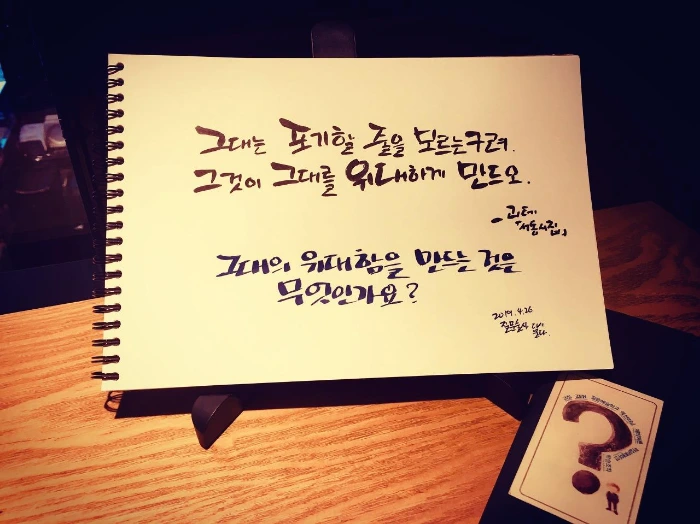 그대는 포기할 줄을 모르는구려.
그것이 그대를 위대하게 만드오.
- 괴테
「서동시집」
그대의 위대함을 만드는 것은
무엇인가요?
2019.4.26
질문술사